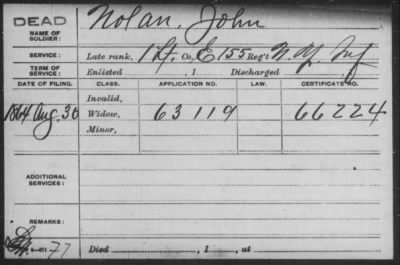 DEAD Nolan, John
NAME OF SOLDIER:
SERVICE: Late rank, 1 Lt, Co, E 155 Reg't N. Y. Inf
TERM OF SERVICE: Enlisted , 1 Discharged
DATE OF FILING. CLASS. APPLICATION NO. LAW. CERTIFICATE NO.
Invalid,
1864 Aug. 30 Widow, 63 119 66224
Minor,
ADDITIONAL SERVICES:
REMARKS:
77 Died , 1 , at